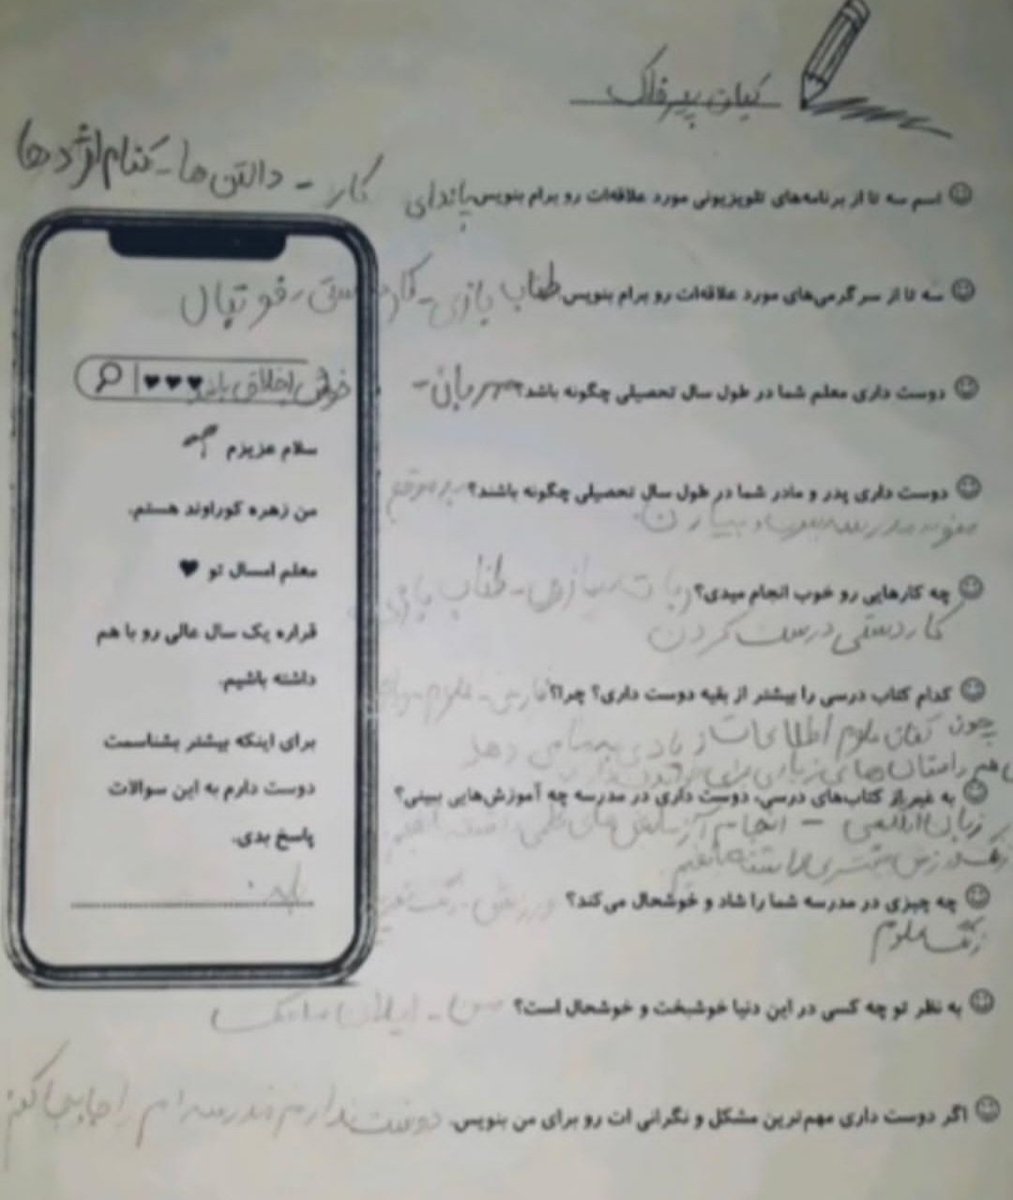 کیان پیرفلک
اسم سه تا از برنامه‌های تلویزیونی مورد علاقه‌ات رو برام بنویس پاندای کار - دالتن ها - کدام اژدها
سه تا از سرگرمی‌های مورد علاقه‌ات رو برام بنویس طناب بازی - کاردستی - فوتبال
دوست داری معلم شما در طول سال تحصیلی چگونه باشد؟ مهربان -
خوش اخلاق باشد
دوست داری پدر و مادر شما در طول سال تحصیلی چگونه باشند؟ به موقع
چه کارهایی رو خوب انجام میدی؟ ربات سازی - طناب بازی
کاردستی درست کردن
کدام کتاب درسی را بیشتر از بقیه دوست داری؟ چرا؟ فارسی - علوم
چون کتاب علوم اطلاعات زیادی به ما می دهد
داستان های زیادی برای
به غیر از کتاب‌های درسی، دوست داری در مدرسه چه آموزش‌هایی ببینی؟
زبان انگلیسی - انجام آزمایش های علمی داشته باشیم
زنگ ورزش بیشتری داشته باشیم
چه چیزی در مدرسه شما را شاد و خوشحال می‌کند؟ ورزش - زنگ
زنگ علوم
به نظر تو چه کسی در این دنیا خوشبخت و خوشحال است؟ من - ایلان ماسک
اگر دوست داری مهم‌ترین مشکل و نگرانی ات رو برای من بنویس. دوست ندارم مدرسه ام را جابجا کنم
سلام عزیزم
من زهره کوراوند هستم.
معلم امسال تو ♥
قراره یک سال عالی رو با هم
داشته باشیم.
برای اینکه بیشتر بشناسمت
دوست دارم به این سوالات
پاسخ بدی.